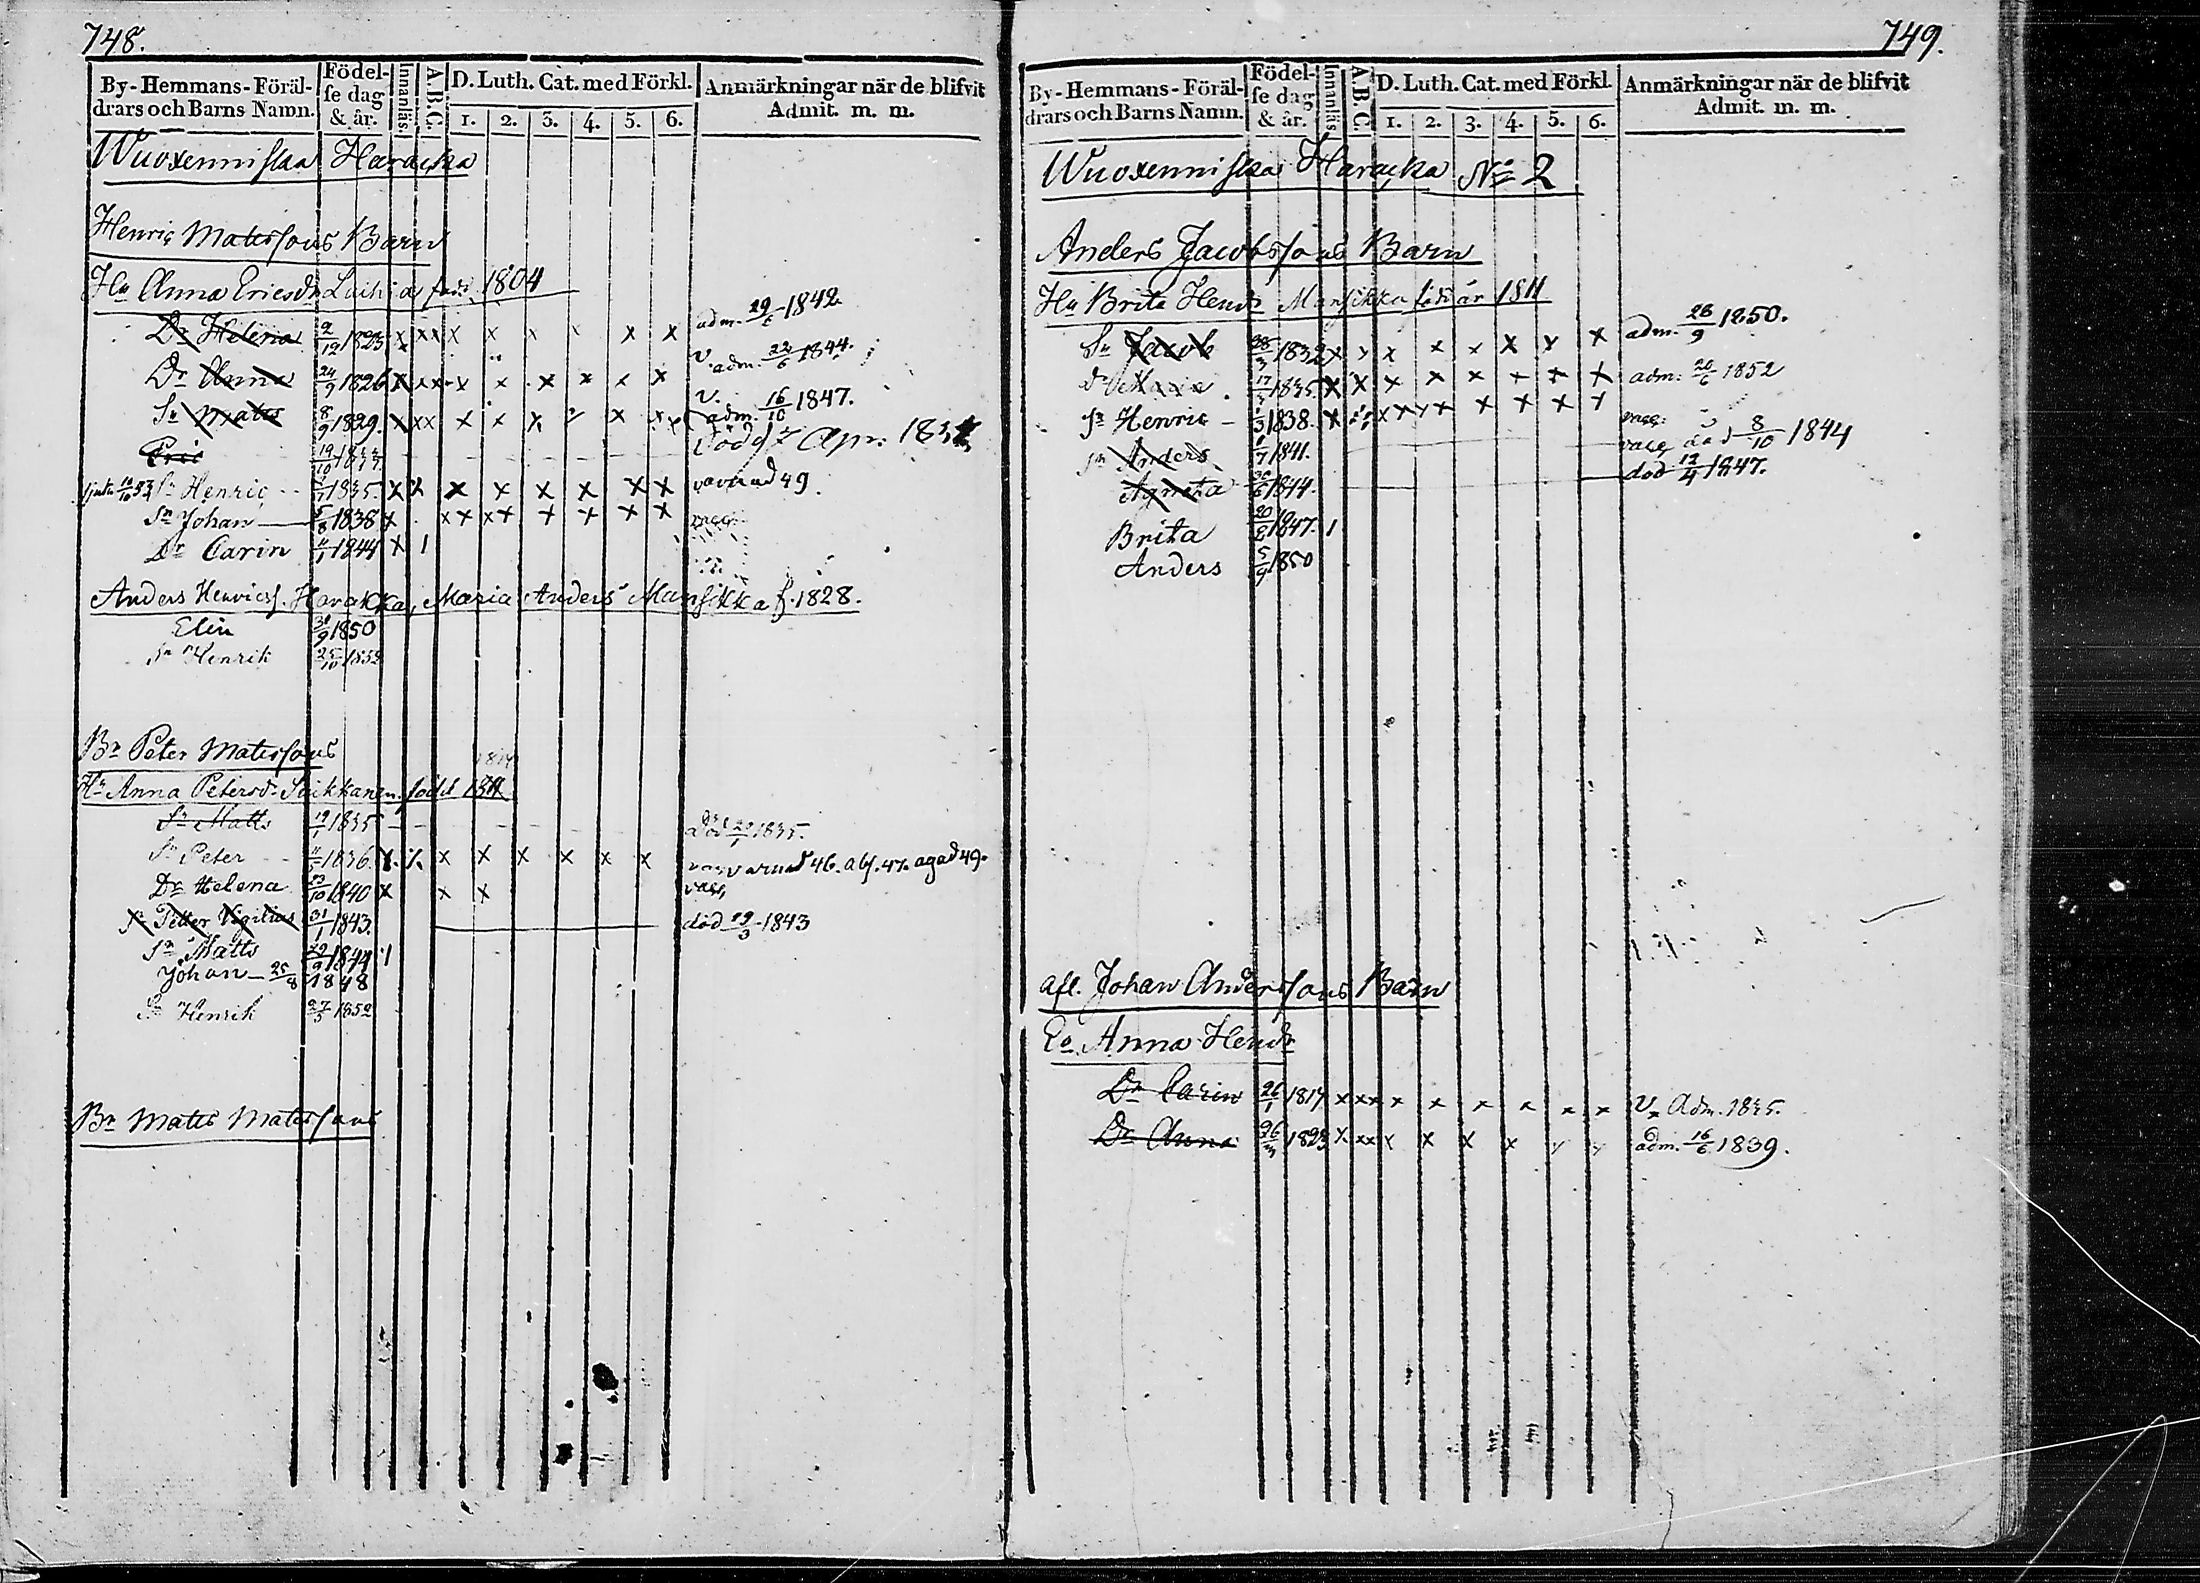 748.
By-Hemmans-Föräl-
drars och Barns Namn.
Födel-
se dag
& år.
Innanläs.
A.B.C.
D. Luth. Cat. med Förkl.
1. 2. 3. 4. 5. 6.
Anmärkningar när de blifvit
Admit. m. m.
Wuoxenniska Haracka
Henric Matssons Barn
Hu Anna Ericsdr Laihia född 1804
Dr Helena 2/12 1823 x xx x x x x x x adm. 29/6 1842
Dr Anna 24/9 1826 x xx x x x x x x v. adm. 22/6 1844.
Sn Mats 8/9 1829. x xx x x x x x v. adm. 16/10 1847.
Eric 19/10 1833 Död Apr. 183
Sn Henric 1835. x x x x x x x x 49.
Sn Johan 5/8 1838 x x x x x x x x x vacc.
Dr Carin 4/1 1844 x 1
Anders Henrics. Harakka, Maria Anders Mansikka f. 1828.
Elin 30/9 1850
Sn Henrik 25/10 1852
Br Peter Matssons
Hu Anna Petersdr född
Sn Matts 19/1 1835 död 1835.
Sn Peter 1836. x. x. x x x x x x 46. abs. 47. agad 49.
Dr Helena 23/10 1840 x x x vacc
Sn Petter Vigilius 31/1 1843. död 19/3 1843
Sn Matts 29/9 1844 1
Johan 25/8 1848
Sn Henrik 27/5 1852
Br Mats Matssons
749.
By-Hemmans-Föräl-
drars och Barns Namn.
Födel-
se dag
& år.
Innanläs.
A.B.C.
D. Luth. Cat. med Förkl.
1. 2. 3. 4. 5. 6.
Anmärkningar när de blifvit
Admit. m. m.
Wuoxenniska Haracka No 2
Anders Jacobssons Barn
Hu Brita Hendr Mansikka född år 1811
Sn Jacob 28/3 1832 x x x x x x x x adm. 26/9 1850.
1835 x x x x x x x x adm. 20/6 1852
Sn Henric 1838. x x x x x x x x x vacc.
Sn Anders 1/7 1841. vacc död 8/10 1844
Agneta 1844. död 12/4 1847.
Brita 20/2 1847. 1
Anders 5/9 1850
Afl. Johan Anderssons Barn
Ea Anna Hendr
Dr Carin 26/1 1817 x xx x x x x x x v. Adm. 1835.
Dr Anna 26/3 1823 x xx x x x x x x adm. 16/6 1839.